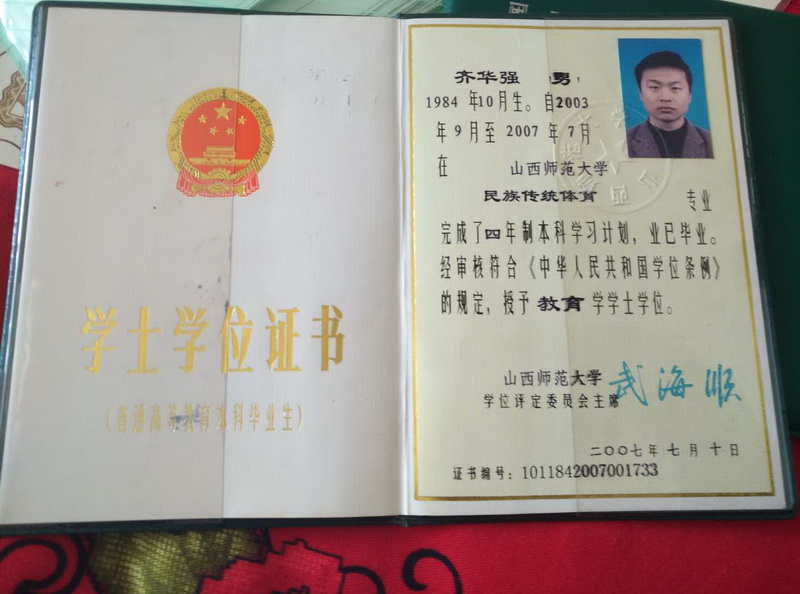 学士学位证书
(普通高等教育本科毕业生)
齐华强 男,
1984 年10月生。自2003
年9月至 2007 年 7月
在 山西师范大学
民族传统体育 专业
完成了四年制本科学习计划，业已毕业。
经审核符合《中华人民共和国学位条例》
的规定，授予 教育 学学士学位。
山西师范大学
学位评定委员会主席
武海顺
二〇〇七年 七 月 十 日
证书编号：1011842007001733